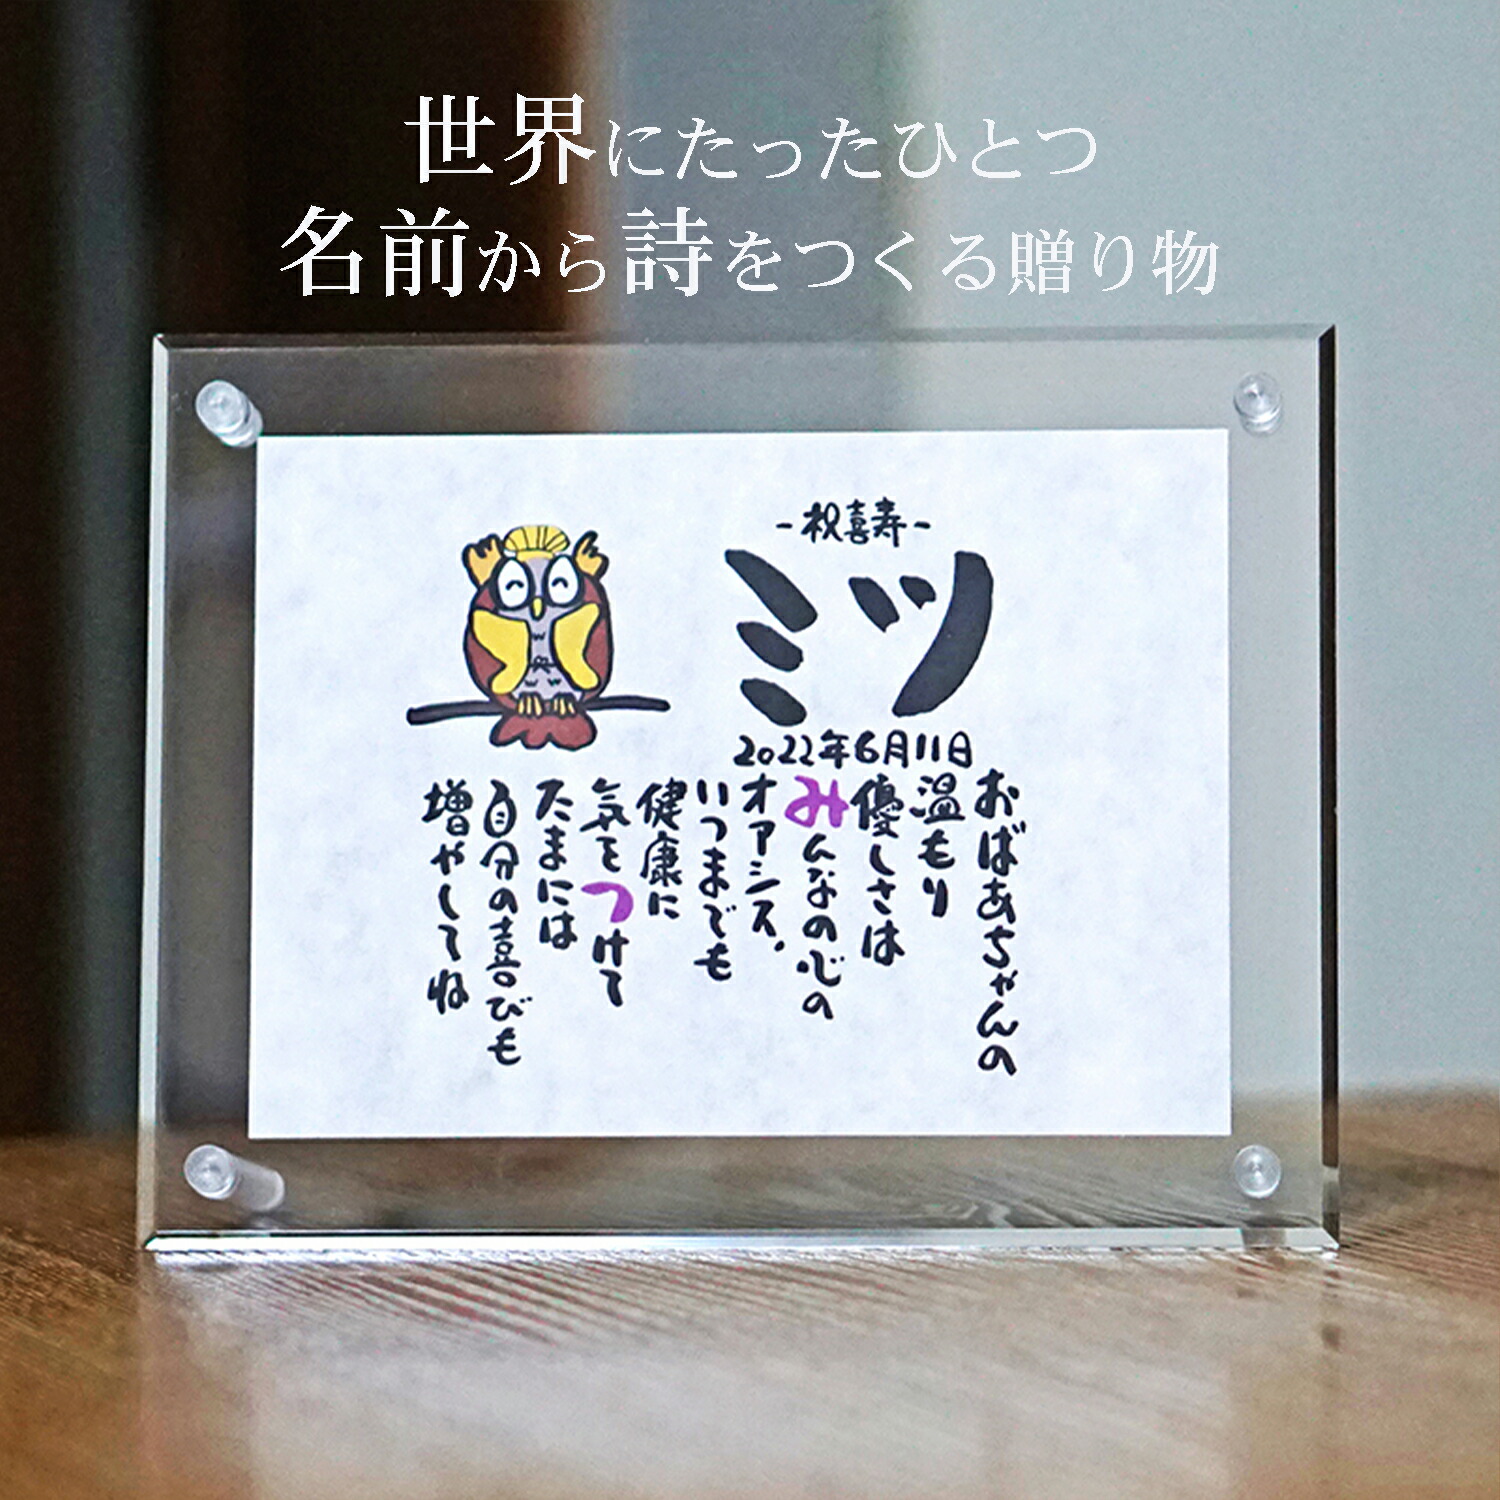 世界にたったひとつ
名前から詩をつくる贈り物
-祝喜寿-
ミツ
2022年6月11日
おばあちゃんの
温もり
優しさは
みんなの心の
オアシス、
いつまでも
健康に
気をつけて
たまには
自分の喜びも
増やしてね